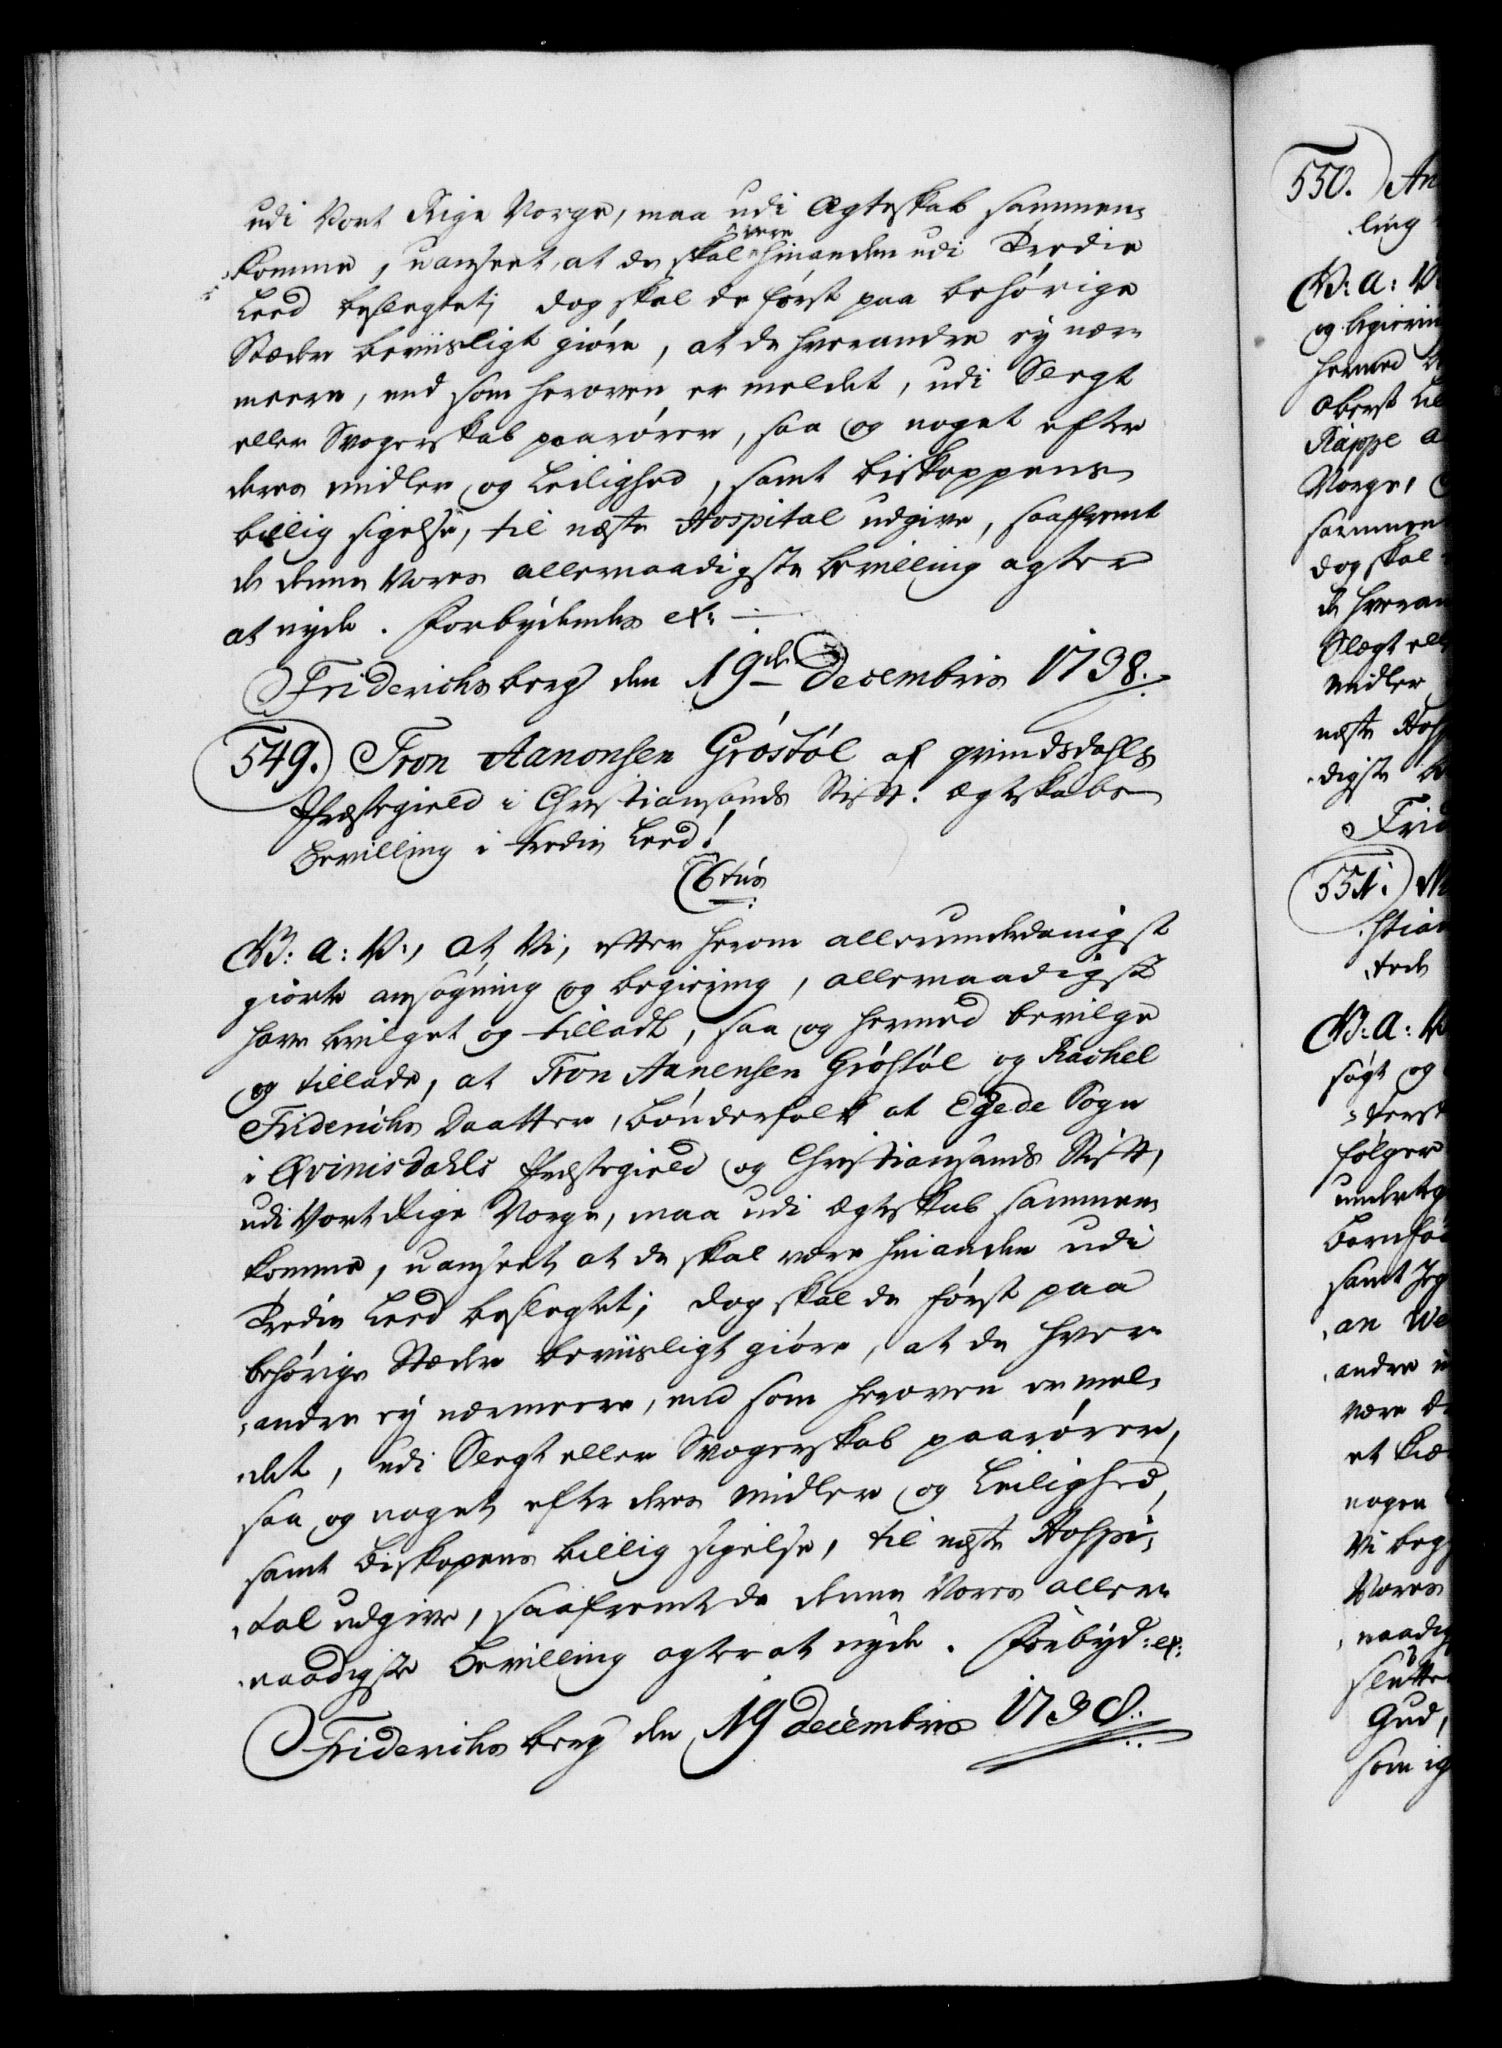 udi Vort Rige Norge, maa udi Ægteskab sammen-
komme, uanseet, at de skal være hinanden udi Tredie
Leed beslegtet; dog skal de først paa behørige
Stæder beviisligt giøre, at de hverandre ey nær-
meere, end som heroven er meldet, udi Slegt
eller Svogerskab paarører, saa og noget efter
deres midler og Leilighed, samt biskoppens
billig sigelse, til næste Hospital udgive, saafremt
de denne Vores allernaadigste bevilling agter
at nyde. Forbydendes etc:
Friderichsberg den 19de Decembris 1738.
549. Tron Aanonsen Grøstøl af qvindsdahls
Præstegield i Christiansands Stift. Ægteskabs
Bevilling i tredie Leed!
C6tus
G: A: V:, At Vi, efter herom allerunderdanigst
giorte ansøgning og begiering, allernaadigst
have bevilget og tilladt, saa og hermed bevilge
og tillade, at Tron Aanensen Grøstøl og Rachel
Friderichs Daatter, bønderfolk at Egede Sogn
i Qvinisdahls Præstegield og Christiansands Stift,
udi Vort Rige Norge, maa udi Ægteskab sammen-
komme, uanseet at de skal være hinanden udi
Tredie Leed beslegtet; dog skal de først paa
behørige Stæder beviisligt giøre, at de hver-
andre ey nærmeere, end som heroven er mel-
det, udi Slegt eller Svogerskab paarører,
saa og noget efter deres midler og Leilighed,
samt Biskopens billig sigelse, til næste Hospi-
tal udgive, saafremt de denne Vores aller-
naadigste Bevilling agter at nyde. Forbyd: etc:
Friderichsberg den 19 Decembris 1738.
550. An
ling
G: A: V
og begierin
hermed
Oberst
Kappe
Norge,
sammen
dog skal
de hveran
Slægt ell
midler
næste Hosp
digste
Frid
551. M
stian
G: A: V
søgt og
først
følger
Barnfø
samt
an We
andre
være
nogen
Vi beg
Vores
naadig
slutte
Gud,
som ig